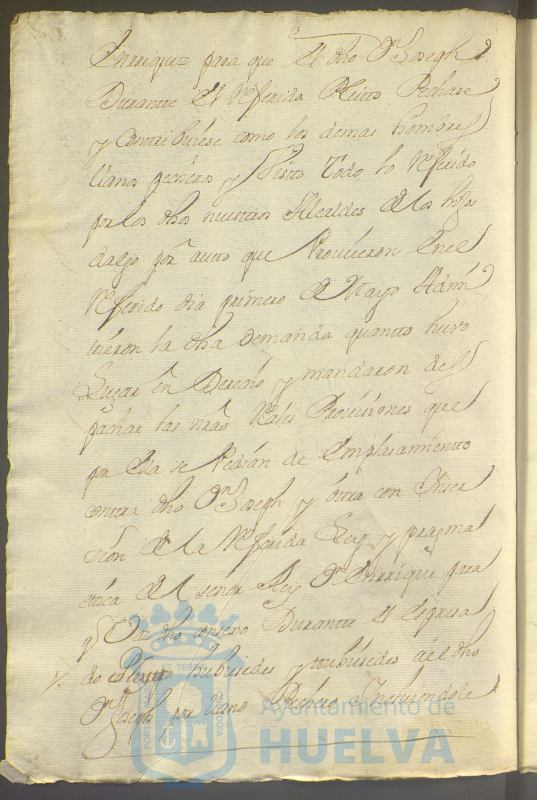 Enrriquez para que el dho Dn Joseph
Durante el Referido Pleito Pechase
y Contribuiese como los demas hombres
llanos pecheros y Visto todo lo Referido
por los dhos nuestros Alcaldes de los hijos
dalgo por auto que Proveieron en el
Referido dia primero de Mayo Admi
tieron la dha demanda quanto huvo
Lugar en Derecho y mandaron des
pachar las nras Reales Provisiones que
por ella se Pedian de Emplasamiento
contra dho Dn Joseph y otra con Inser
cion de la Referida Ley y pragma
ctica del señor Rey Dn Enrrique para
q dho consexo Durante el Expresa
do Pleyto hubiesedes y tubiesedes al dho
Dn Joseph por llano Pechero Incluiendole
Ayuntamiento de
HUELVA